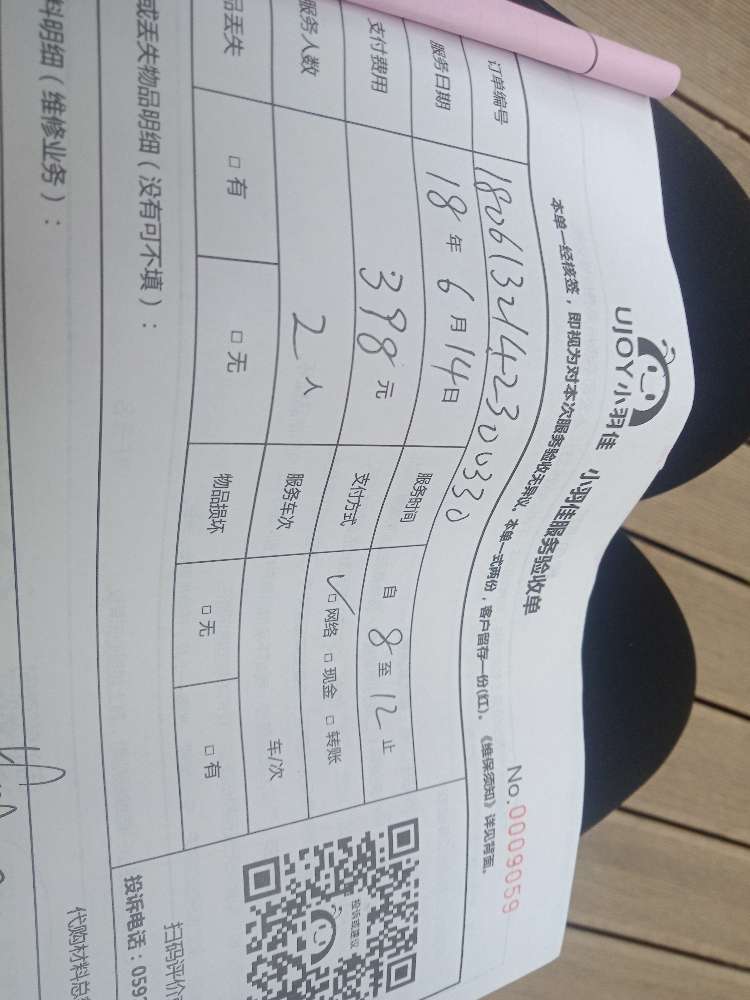 UJOY小羽佳
小羽佳服务验收单
No.0009059
本单一经核签，即视为对本次服务验收无异议。本单一式两份，客户留存一份(红)。《维保须知》详见背面。
订单编号
服务日期 18年6月14日 服务时间 自8至12止
支付费用 398元 支付方式 ✓□网络 □现金 □转账
服务人数 2人 服务车次 车/次
品丢失 □有 □无 物品损坏 □无 □有
或丢失物品明细（没有可不填）：
料明细（维修业务）：
投诉或建议
扫码评价
投诉电话：059
代购材料总